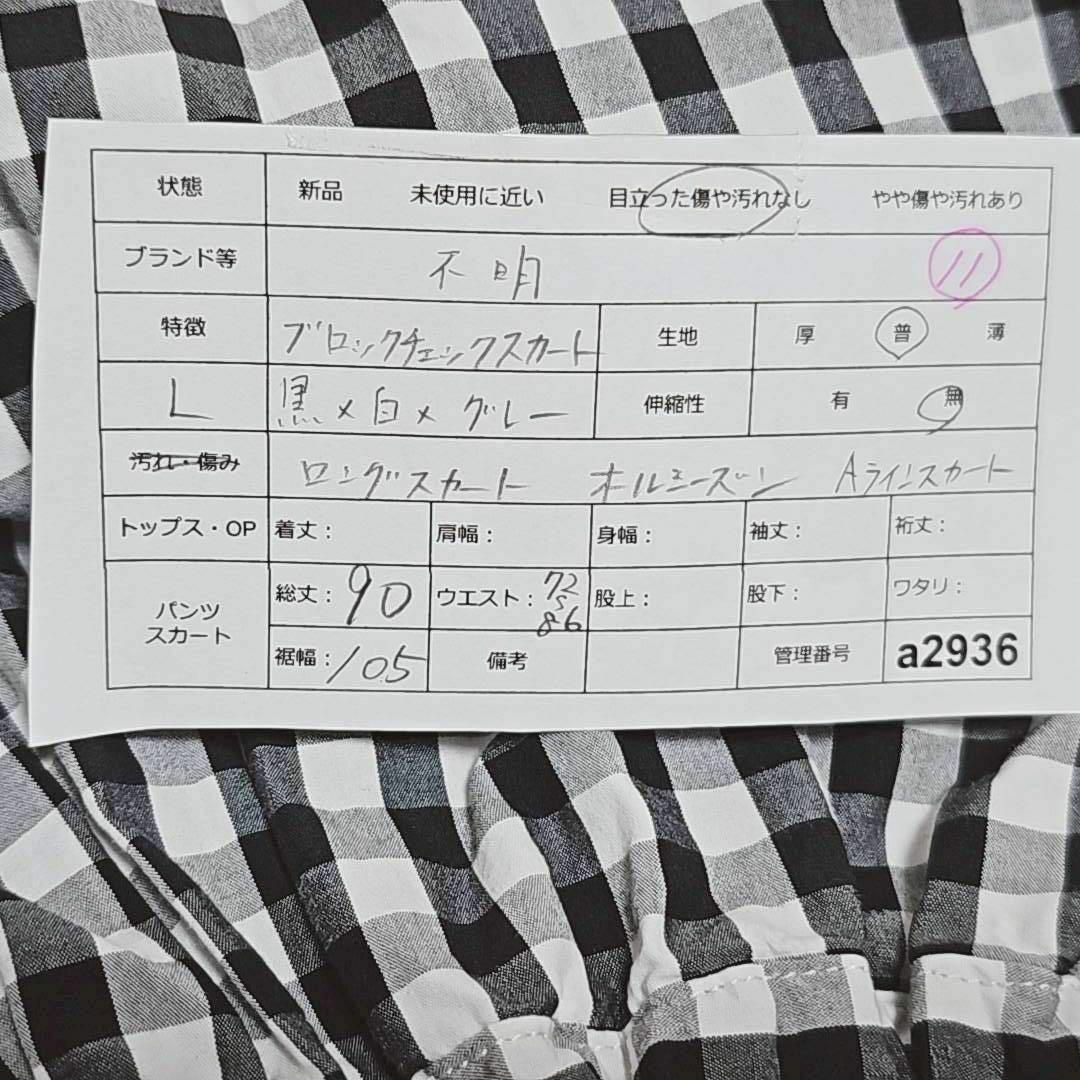 状態 新品 未使用に近い 目立った傷や汚れなし やや傷や汚れあり
ブランド等 不明 11
特徴 ブロックチェックスカート 生地 厚 普 薄
L 黒×白×グレー 伸縮性 有 無
汚れ・傷み ロングスカート オールシーズン Aラインスカート
トップス・OP 着丈: 肩幅: 身幅: 袖丈: 裄丈:
パンツ
スカート
総丈:90 ウエスト:72 股上: 股下: ワタリ:
86
裾幅:105 備考 管理番号 a2936